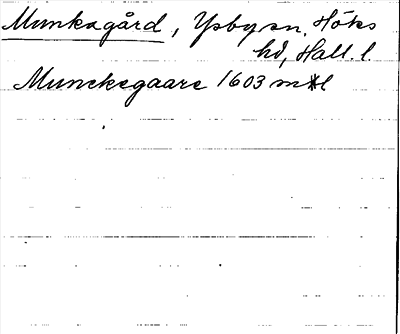 Munkagård, Ysby sn, Höks
hd, Hall. l.
Munckegaare 1603 m*l